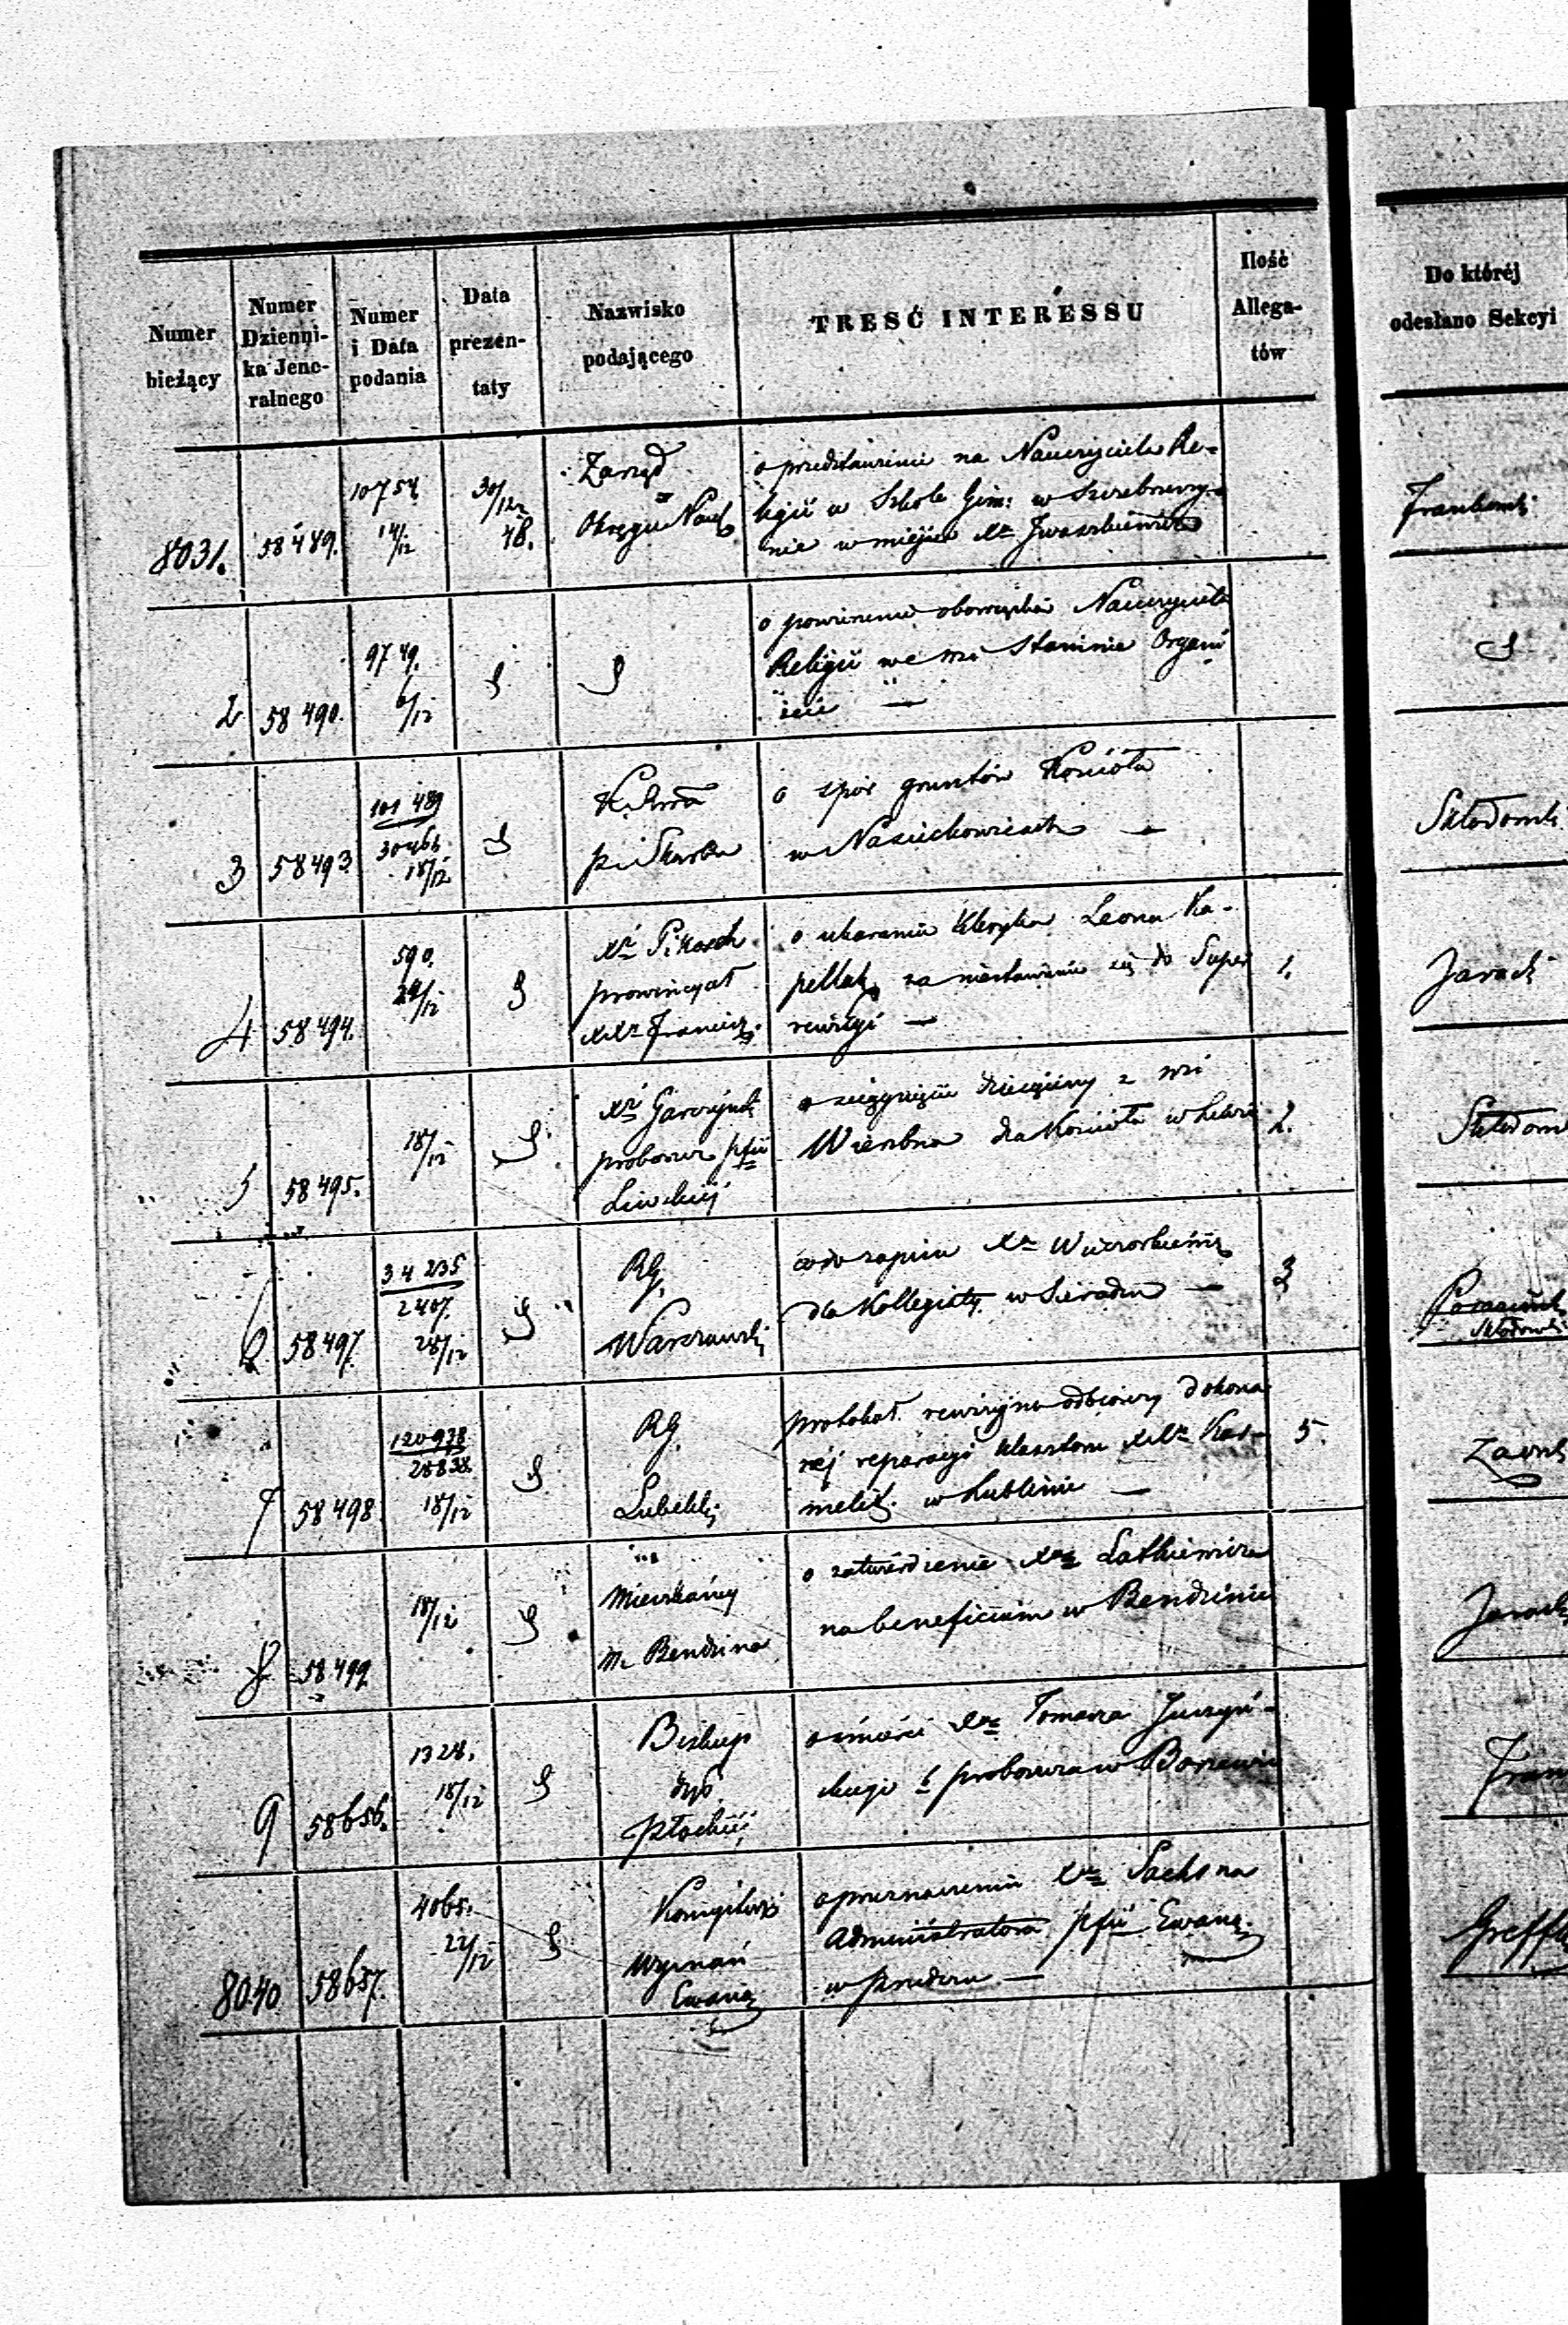 Numer
bieżący
Numer
Dzienni-
ka Jene-
ralnego
Numer
i Data
podania
Data
prezen-
taty
Nazwisko
podającego
TRESĆ INTERESSU
Ilość
Allega-
tów
Do któréj
odesłano Sekcyi
8031.
58489.
10754
14/12
30/12
48.
Zarząd
Okręgu Nauk
o przedstawienie na Nauczyciela Re-
ligii w Szkole Gim: w Szczebrzeszy-
nie w miejsce Xa Iwaszkiewicza
2
58490.
9749.
6/12
o powierzenie obowiązków Nauczyciela
Religii we wsi Staninie Organi
ście —
3
58493
101489
30466
18/12
p. i Skarbu
o spór gruntów Kościoła
w Nasiechowicach —
Skłodowsk
4
58494.
590.
29/12
Xd Pikosch
prowincyał
XXn Francisz.
o ukaranie Kleryka Leona Ka-
pellak za niestawienie się do Super
rewizyi —
1.
Jarock
5
58495.
18/12
Xd
proboszcz pfii
Liwskiéj
o ściągnięcie dziesięciny z wsi
Wierzbna dla Kościoła w Liwie
2.
Skłodows
6
58497.
34235
2407.
28/12
RG.
Warszawski
co do zapisu Xa
dla Kollegiaty w Sieradzu —
3
Skłodowsk
7
58498
120938
28838.
18/12
RG.
Lubelski
protokół rewizyjno odbiorczy dokona
néj reparacyi klasztoru XXn Kar-
melit. w Lublinie —
5.
8
58499
18/12
Mieszkańcy
m. Bendzina
o zatwierdzenie Xa Latkiewicza
na beneficium w Bendzinie
Jarock
9
58656.
1328.
18/12
Biskup
dyć.
Płockiéj
o śmierci Xa Tomasza
skiego b proboszcza w
8040.
58657.
4065.
22/12
Konsystorz
Wyznań
Ewang
o przeznaczeniu Xa Sachs na
Administratora pfii Ewang.
w Przedczu —